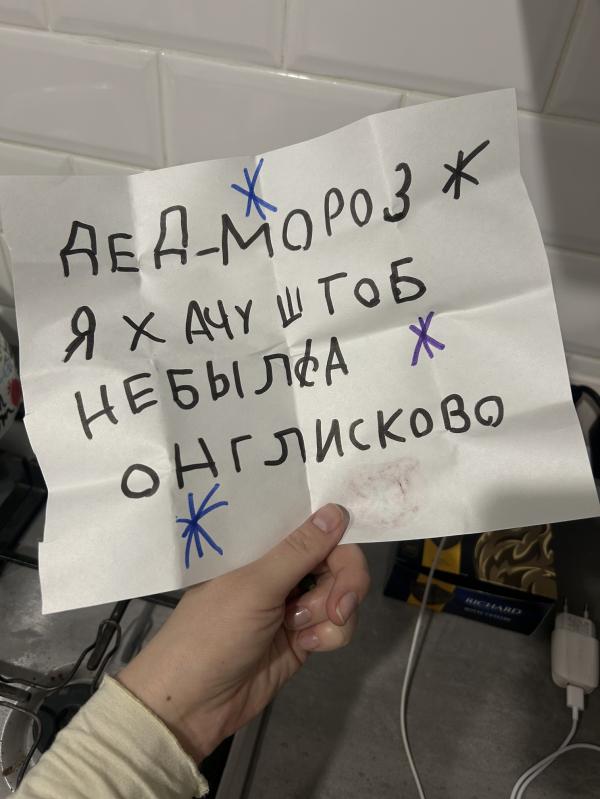 ДЕД-МОРОЗ
Я ХАЧУ ШТОБ
НЕБЫЛА
ОНГЛИСКОВО
RICHARD